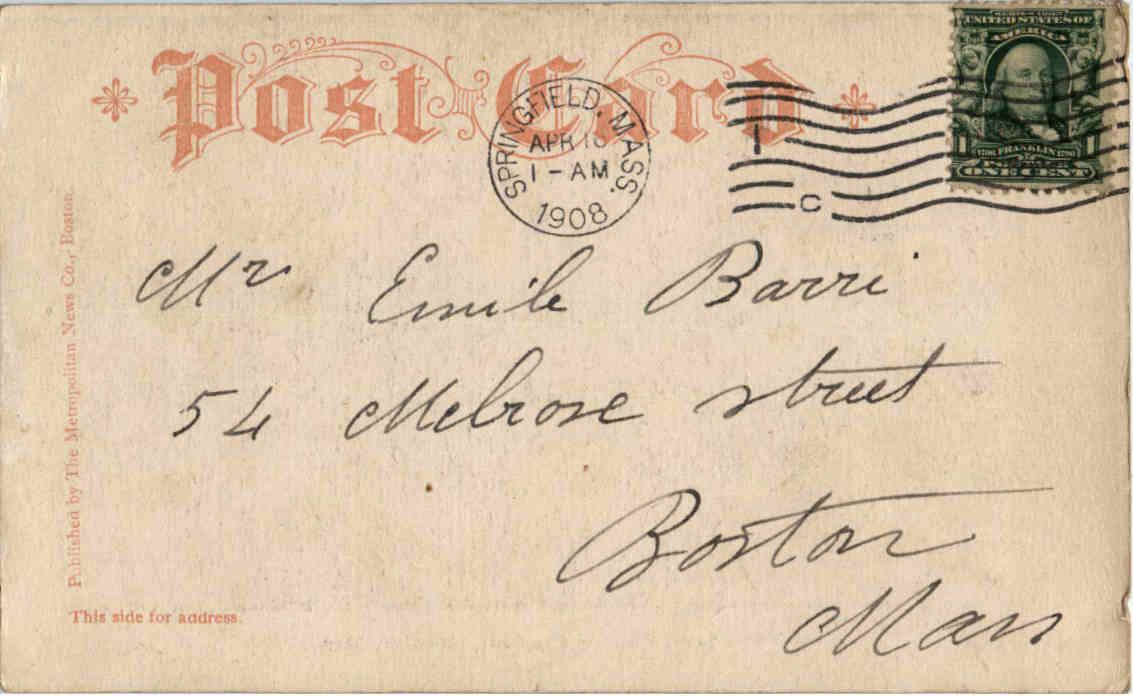 Post Card
SPRINGFIELD, MASS.
APR 16
1 - AM
1908
C
UNITED STATES OF
AMERICA
1 FRANKLIN 1
ONE CENT
Mr Emile Barri
54 Melrose street
Boston
Mass
Published by The Metropolitan News Co., Boston.
This side for address.